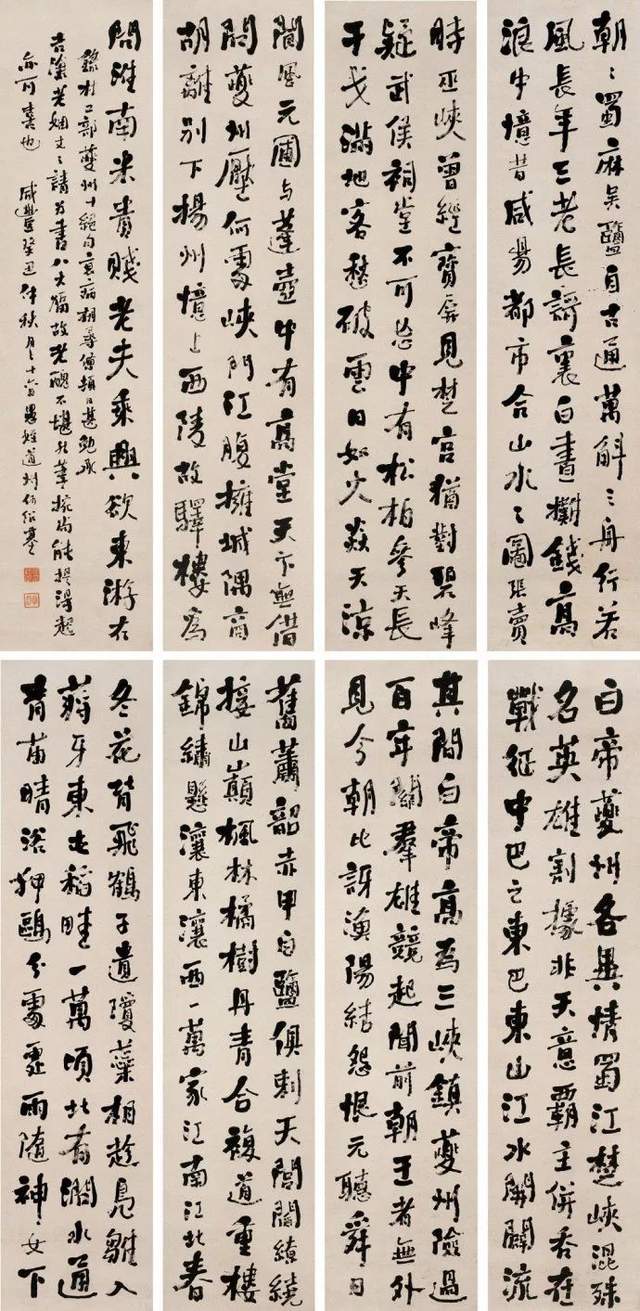 白帝夔州各異情蜀江楚峽混殊
名英雄割據非天意霸主併吞在
戰征中巴之東巴東山江水開闢流
其間白帝高為三峽鎮夔州險過
百牢關羣雄競起聞前朝王者無外
見今朝比訝漁陽結怨恨元聽舜日
舊蕭韶赤甲白鹽俱刺天閭閻繚繞
接山巔楓林橘樹丹青合複道重樓
錦繡懸瀼東瀼西一萬家江南江北春
冬花背飛鶴子遺瓊蘂相趁鳧雛入
蔣牙東屯稻畦一萬頃北有澗水通
青苗晴浴狎鷗分處處雨隨神女下
朝〻蜀麻吳鹽自古通萬斛之舟行若
風長年三老長歌裏白晝攤錢高
浪中憶昔咸陽都市合山水之圖張賣
時巫峽曾經寶屏見楚宮猶對碧峰
疑武侯祠堂不可忘中有松柏參天長
干戈滿地客愁破雲日如火炎天涼
閬風元圃與蓬壺中有高堂天下無借
問夔州壓何處峽門江腹擁城隅商
胡離別下揚州憶上西陵故驛樓為
問淮南米貴賤老夫乘興欲東游右
錄杜工部夔州十絕句病相尋倦頓日甚勉承
老姻丈之請為書八大幅故老醜不堪然筆椀尚能提得起
亦可喜也 咸豐癸丑仲秋月之十六日愚姪道州何紹基